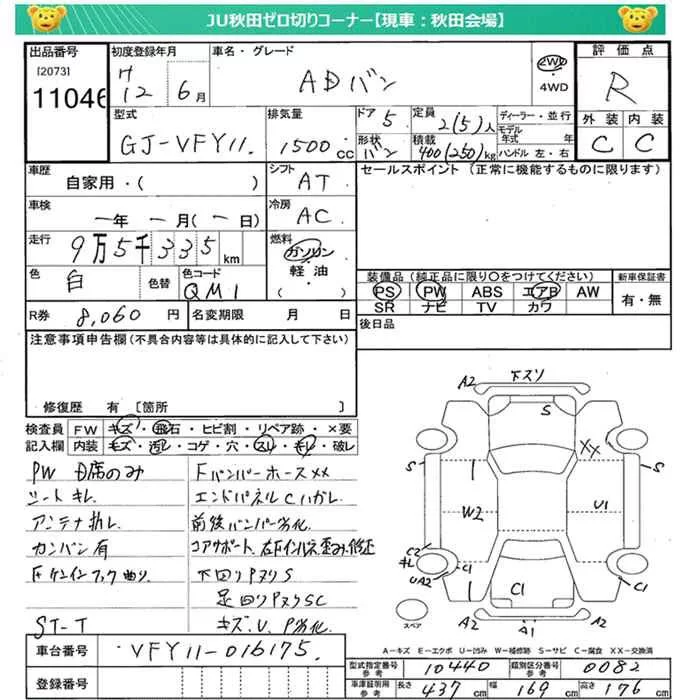 JU秋田ゼロ切りコーナー【現車：秋田会場】
出品番号
[2073]
11046
初度登録年月
H 12 6月
車名・グレード
ADバン
2WD
4WD
評価点
R
外装 内装
C C
型式
GJ-VFY11.
排気量
1500 cc
ドア 5
形状 バン
定員 2(5)人
積載 400(250)kg
ディーラー・並行
モデル年式 年
ハンドル 左・右
車歴
自家用・( )
シフト
AT
車検
－年 －月(－日)
冷房
AC
走行
9万5千335km
燃料
ガソリン
軽油
( )
色
白
色替
色コード
QM1
R券 8,060円
名変期限 月 日
セールスポイント（正常に機能するものに限ります）
装備品（純正品に限り○をつけてください）
PS PW ABS エアB AW
SR ナビ TV カワ
新車保証書
有・無
後日品
注意事項申告欄（不具合内容等は具体的に記入して下さい）
修復歴 有 〔箇所 〕
検査員記入欄
FW キズ・飛石・ヒビ割・リペア跡・×要
内装 キズ・汚レ・コゲ・穴・スレ・キレ・破レ
PW D席のみ
シートキレ
アンテナ折レ
カンバン有
ST-T
FバンパーホースXX
エンドパネルCハガレ
前後バンパー劣化
下回りPヌリS
足回りPヌリSC
キズ、U、P劣化
A2 下スソ
S
XX
S
S
W2
U1
C2
キレ
UA2
C1
C1
C1
A2
A1
A2
スペア
A－キズ E－エクボ U－凹み W－補修跡 S－サビ C－腐食 XX－交換済
車台番号
VFY11-016175.
登録番号
型式指定番号 参考 10440
類別区分番号 参考 0082
車庫証明用 参考
長さ 437cm
幅 169cm
高さ 176cm